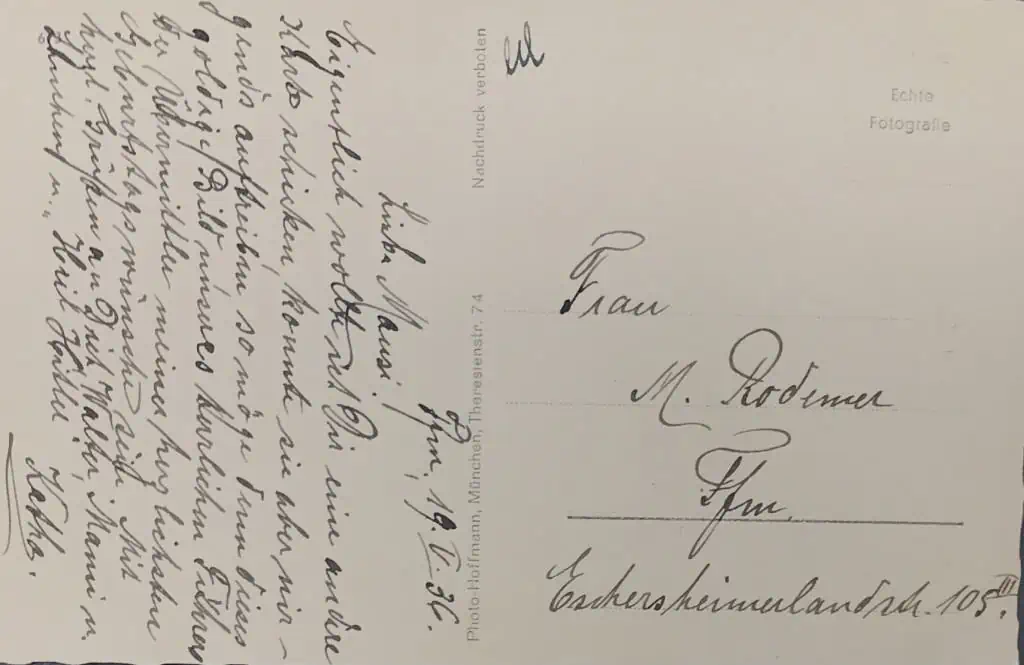 Ffm, 19. V. 36.
Liebe Mausi!
Eigentlich wollte ich Dir eine andere
Karte schicken, konnte sie aber nir-
gends auftreiben, so möge denn dieses
goldige Bild unseres herrlichen Führers
der Übermittler meiner herzlichsten
Geburtstagswünsche sein. Mit
herzl. Grüßen an Dich, Walter, Mami u.
u. "Heil Hitler"
Käthe.
Nachdruck verboten
Photo-Hoffmann, München, Theresienstr. 74
Echte
Fotografie
Frau
M. Rodemer
Ffm.
Eschersheimerlandstr. 105 III.